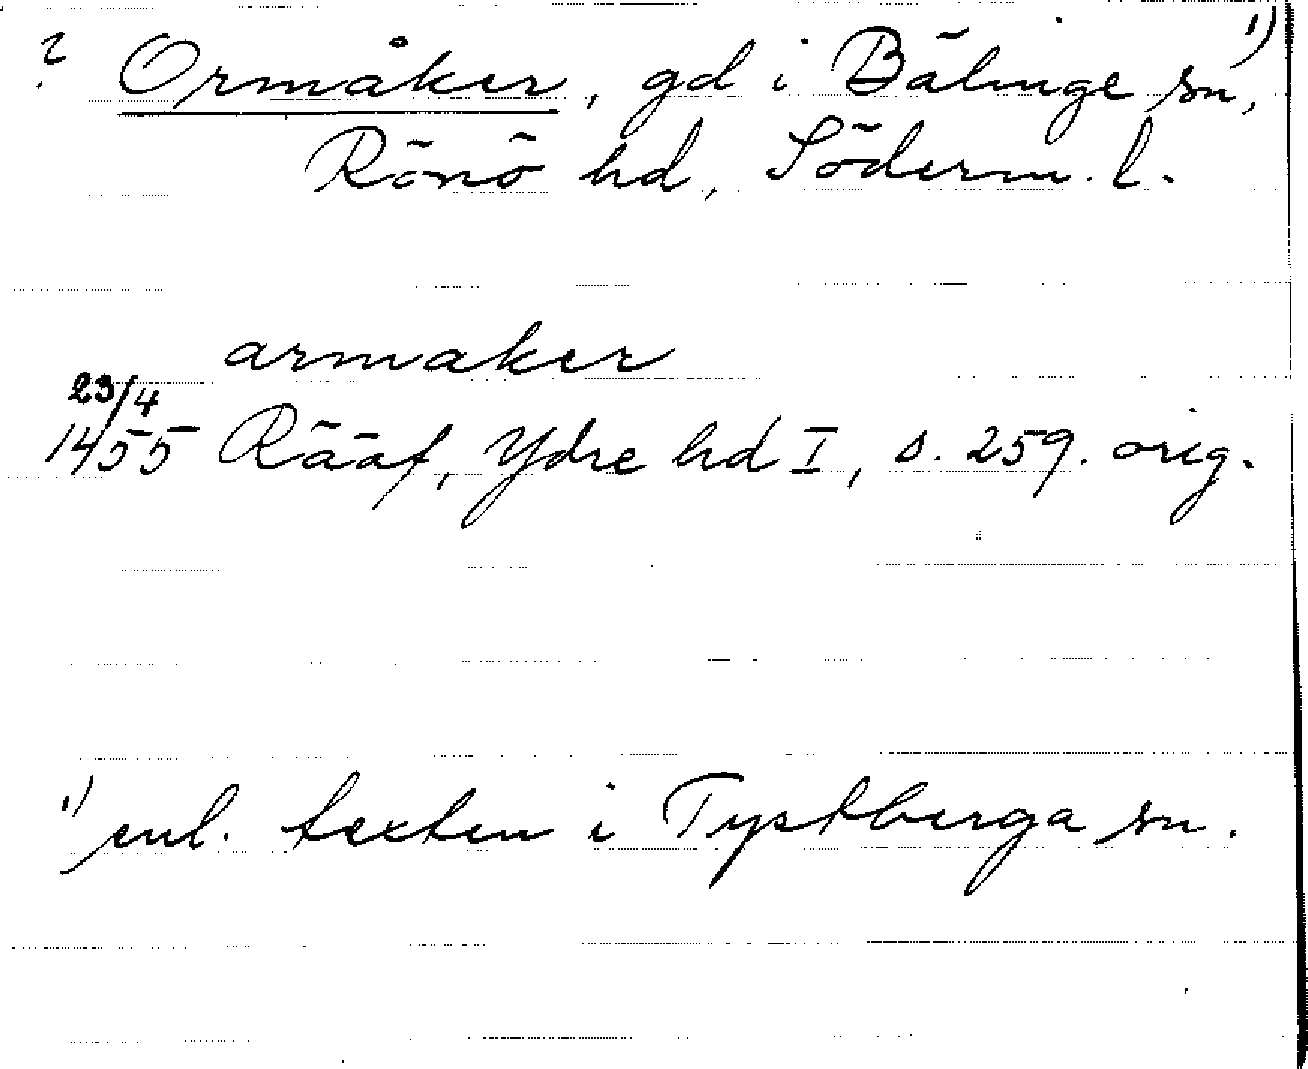 ? Ormåker, gd i Bälinge sn, 1)
Rönö hd, Söderm. l.
armaker
23/4
1455 Rääf, Ydre hd I, s. 259. orig.
1) enl. texten i Tystberga sn.